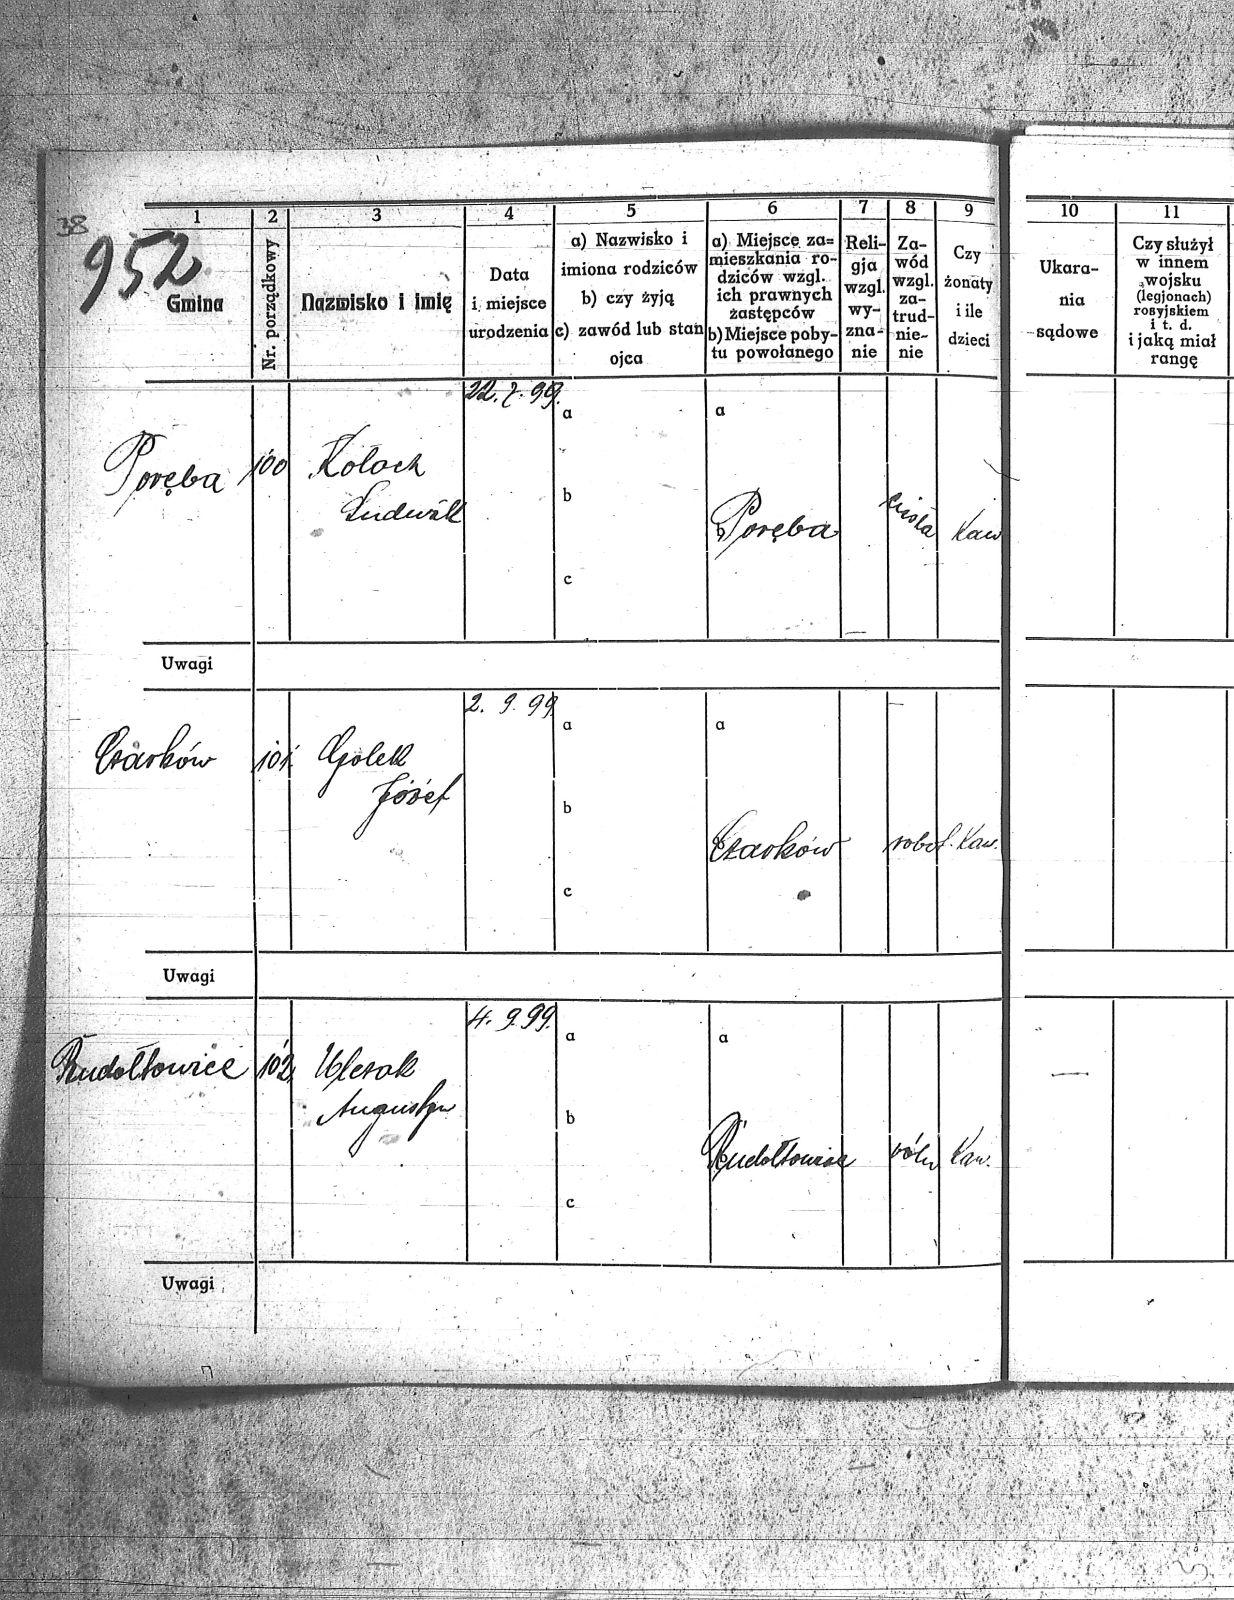 38
952
1 2 3 4 5 6 7 8 9 10 11
Gmina
Nr. porządkowy
Nazwisko i imię
Data
i miejsce
urodzenia
a) Nazwisko i
imiona rodziców
b) czy żyją
c) zawód lub stan
ojca
a) Miejsce za=
mieszkania ro-
dziców wzgl.
ich prawnych
zastępców
b) Miejsce poby-
tu powołanego
Reli-
gja
wzgl.
wy-
zna-
nie
Za-
wód
wzgl.
za-
trud-
nie-
nie
Czy
żonaty
i ile
dzieci
Ukara-
nia
sądowe
Czy służył
w innem
wojsku
(legjonach)
rosyjskiem
i t. d.
i jaką miał
rangę
22. 7. 99.
a a
Poręba 100 Kołoch
Ludwik
b
b Poręba cieśla Kaw
c
Uwagi
2. 9. 99
a a
Czarków 101. Golek
Józef
b
b Czarków robot. Kaw.
c
Uwagi
4. 9. 99.
a a
Rudołtowice 102.
Augustyn
b
b Rudołtowice Kaw.
c
Uwagi